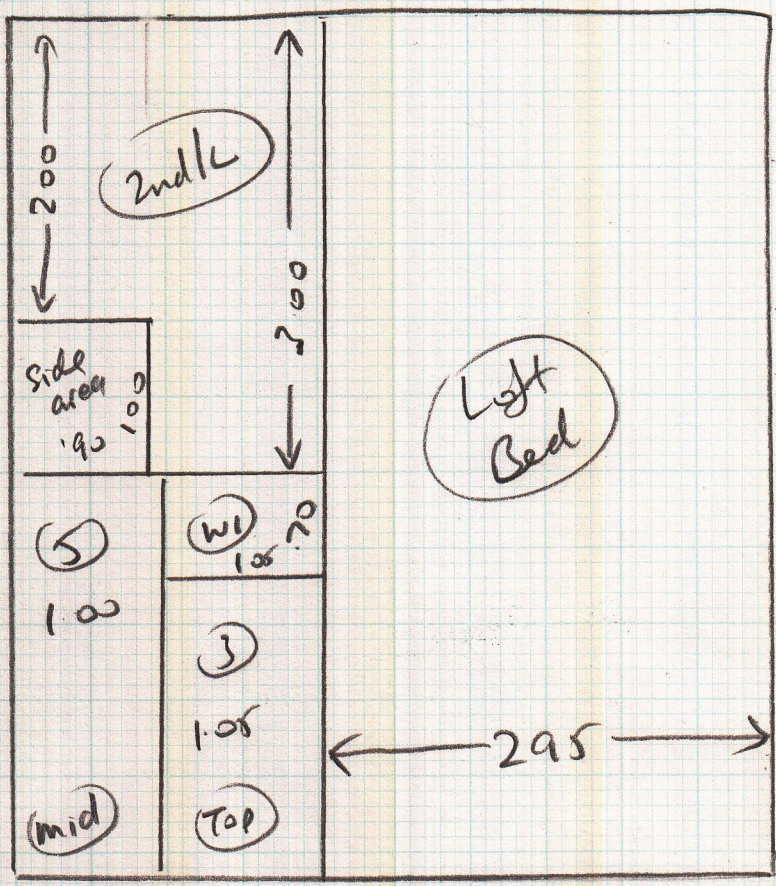 200
2nd/L
300
Side
area
.90
1.00
Loft
Bed
5
1.00
W1
1.05
.70
3
1.05
295
mid
Top